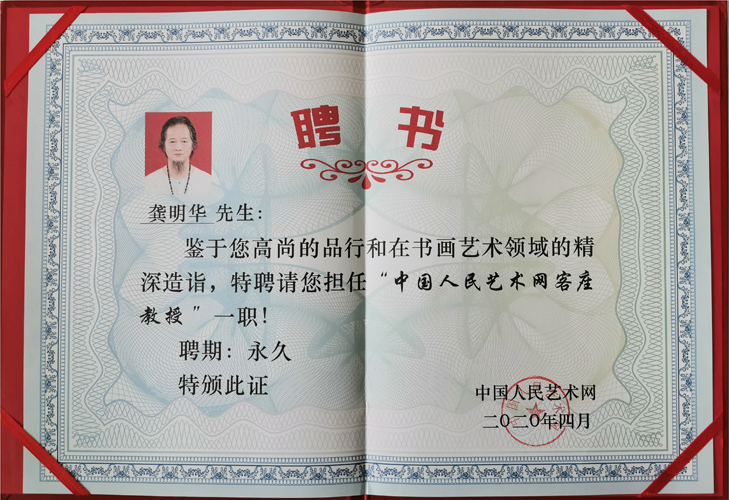 聘书
龚明华 先生：
鉴于您高尚的品行和在书画艺术领域的精
深造诣，特聘请您担任“中国人民艺术网客座
教授”一职！
聘期：永久
特颁此证
中国人民艺术网
二〇二〇年四月